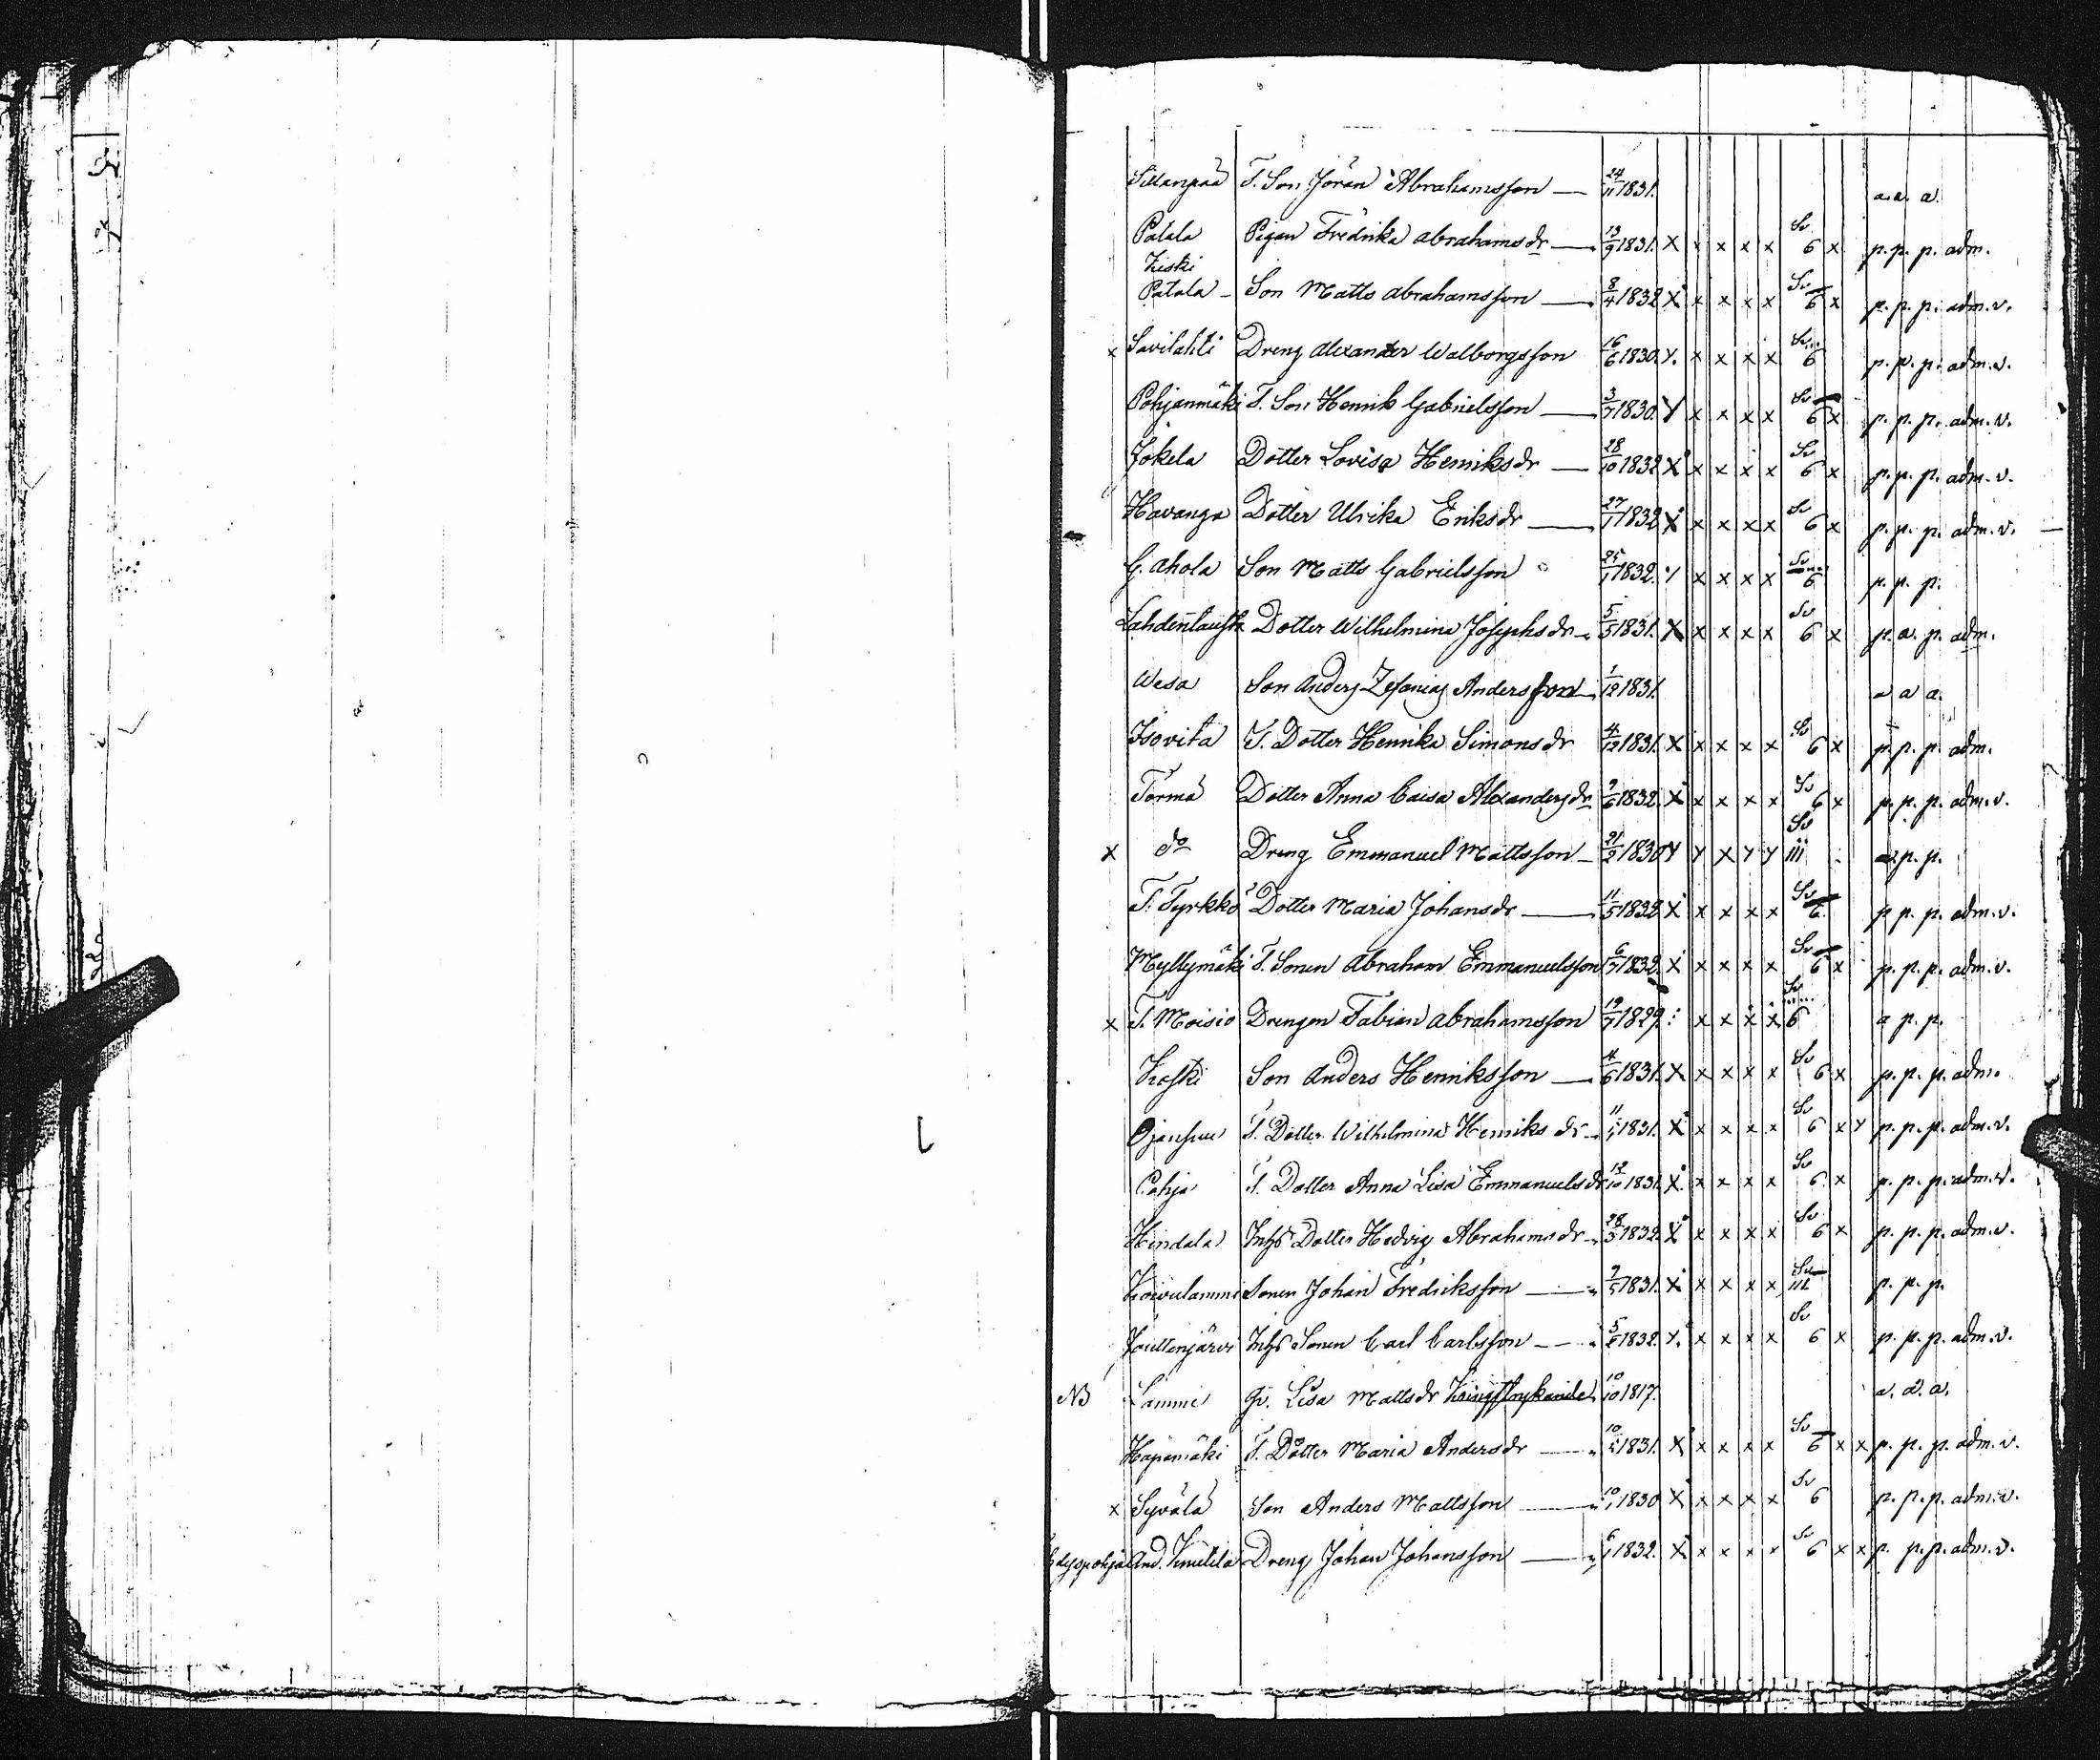 Sillanpää T. Son Jöran Abrahamsson — 24/11 1831. a. a. a.
Patala Pigan Fredrika Abrahamsdr — 13/9 1831. X x x x x Sv 6 x p. p. p. adm.
Kiski
Patala - Son Matts Abrahamsson — 8/4 1832 X x x x x Sv 6 x p. p. p. adm. v.
x Savilahti Dreng Alexander Walborgsson 16/6 1830. x x x x Sv 6 p. p. p. adm. v.
Pohjanmäki T. Son Henrik Gabrielsson — 3/7 1830. Y x x x x Sv 6 x p. p. p. adm. v.
Jokela Dotter Lovisa Henriksdr — 28/10 1832 X x x x x Sv 6 x p. p. p. adm. v.
Havanga Dotter Ulrika Eriksdr — 27/1 1832 X x x x x Sv 6 x p. p. p. adm. v.
G. Ahola Son Matts Gabrielsson 25/1 1832. x x x x Sv 6 p. p. p.
Dotter Wilhelmina Josephsdr 5/5 1831. X x x x x Sv 6 x p. a. p. adm.
Wesa Son Anders Zefanias Andersson 1/12 1831. a a a.
Isovita T. Dotter Henrika Simonsdr 4/12 1831. X x x x x Sv 6 x p. p. p. adm.
Törmä Dotter Anna Caisa Alexandersdr 1832 X x x x x Sv 6 x p. p. p. adm. v.
x do Dreng Emmanuel Mattsson 21/2 1830 Y Y X Y Y Sv III a. p. p.
T. Tyrkkö Dotter Maria Johansdr — 11/5 1832 X x x x x Sv 6 p p. p. adm. v.
Myllymäki T. Sonen Abraham Emmanuelsson 6/7 1832. X x x x x Sv 6 x p. p. p. adm. v.
x T. Moisio Drengen Fabian Abrahamsson 19/7 1829. x x x x Sv 6 a p. p.
Koski Son Anders Henriksson — 4/6 1831. X x x x x Sv 6 x p. p. p. adm.
T. Dotter Wilhelmina Henriksdr 1831. X x x x x Sv 6 x Y p. p. p. adm. v.
Pohja T. Dotter Anna Lisa Emmanuelsdr 1831. X x x x x Sv 6 x p. p. p. adm. v.
Hindala Inhs Dotter Hedvig Abrahamsdr 28/3 1832. X x x x x Sv 6 x p. p. p. adm. v.
Koivulammi Sonen Johan Fredriksson — 1831. X x x x x Sv III p. p. p.
Jouttenjärvi Inhs Sonen Carl Carlsson — 1832. x x x x Sv 6 x p. p. p. adm. v.
NB Lammi Qv. Lisa Mattsdr 10/10 1817. a. a. a.
Hapamäki T. Dotter Maria Andersdr — 1831. X x x x x Sv 6 x x p. p. p. adm. v.
x Syvälä Son Anders Mattsson — 10/1 1830 X x x x x Sv 6 p. p. p. adm. v.
And. Dreng Johan Johansson — 6/1 1832. X x x x x Sv 6 x x p. p. p. adm. v.